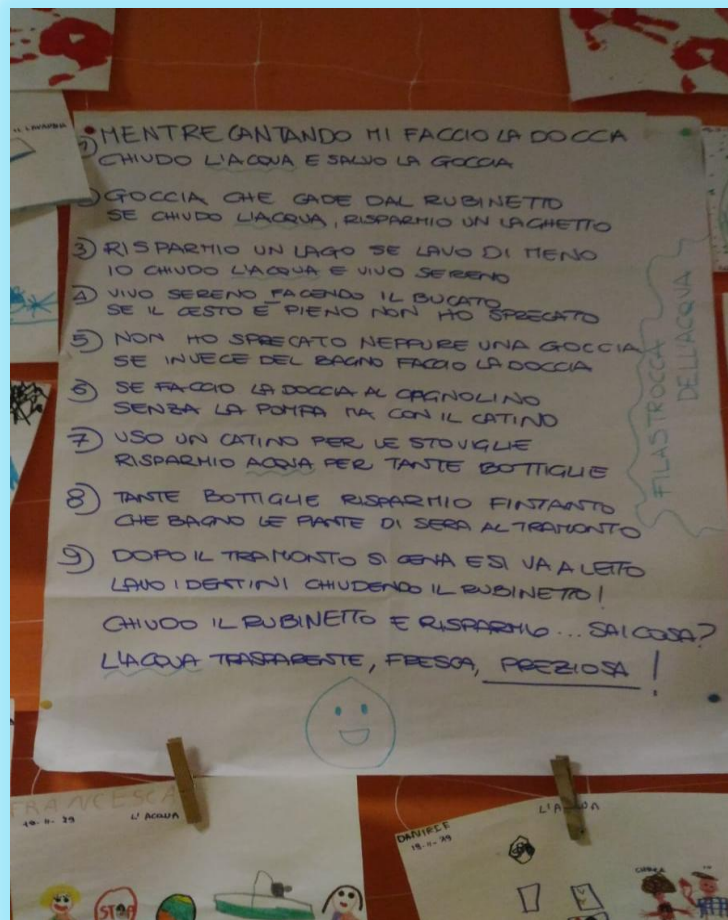 IL LAVANDA
1) MENTRE CANTANDO MI FACCIO LA DOCCA
CHIUDO L'ACQUA E SALVO LA GOCCIA
GOCCIA CHE CADE DAL RUBINETTO
SE CHIUDO L'ACQUA, RISPARMIO UN LAGHETTO
3) RISPARMIO UN LAGO SE LAVO DI MENO
IO CHIUDO L'ACQUA E VIVO SERENO
4) VIVO SERENO FACENDO IL BUCATO
SE IL CESTO È PIENO NON HO SPRECATO
5) NON HO SPRECATO NEPPURE UNA GOCCIA
SE INVECE DEL BAGNO FACCIO LA DOCCIA
6) SE FACCIO LA DOCCIA AL CAGNOLINO
SENZA LA POMPA MA CON IL CATINO
7) USO UN CATINO PER LE STOVIGLIE
RISPARMIO ACQUA PER TANTE BOTTIGLIE
8) TANTE BOTTIGLIE RISPARMIO FINTANTO
CHE BAGNO LE PIANTE DI SERA AL TRAMONTO
9) DOPO IL TRAMONTO SI CENA E SI VA A LETTO
LAVO I DENTINI CHIUDENDO IL RUBINETTO!
CHIUDO IL RUBINETTO E RISPARMIO... SAI COSA?
L'ACQUA TRASPARENTE, FRESCA, PREZIOSA!
FILASTROCCA
DELL'ACQUA
FRANCESCA
L'ACQUA
STOP
L'ACQUA